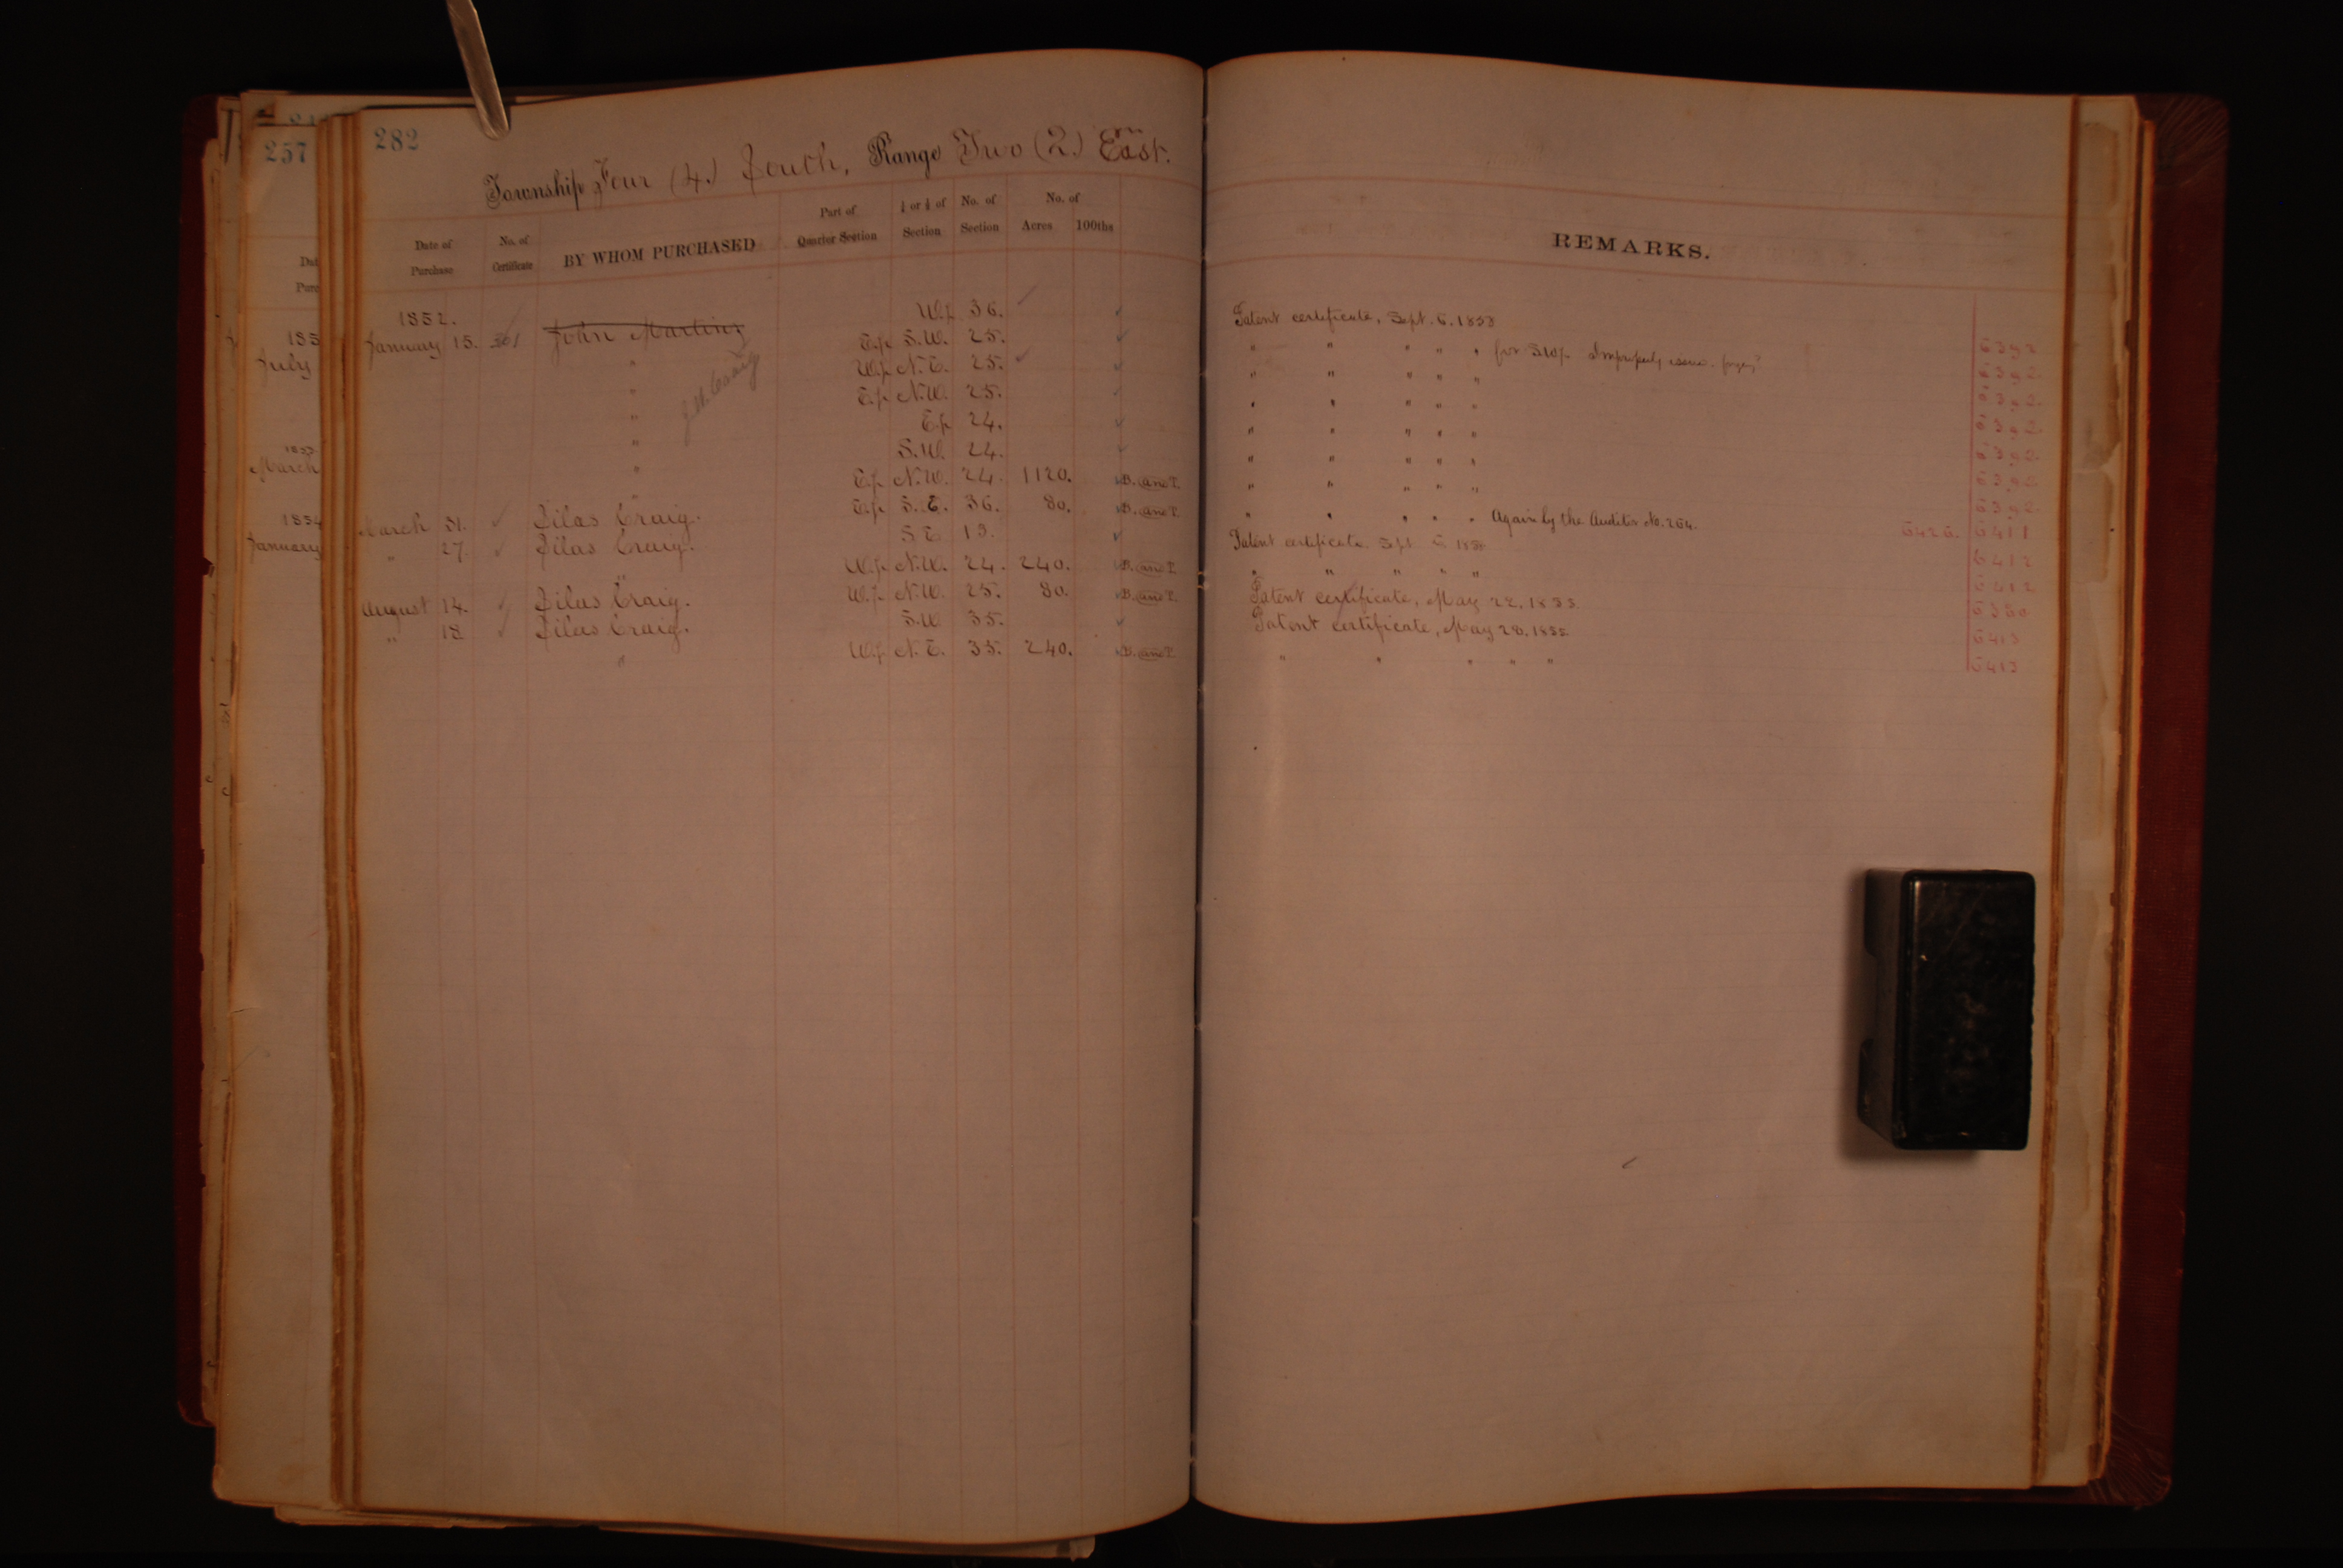 282
257
Township Four (4.) South, Range Two (2.) East.
Date of Purchase
No. of Certificate
BY WHOM PURCHASED
Part of Quarter Section
½ or ¼ of Section
No. of Section
No. of
Acres 100ths
REMARKS.
1852.
W.½ 36. Patent certificate, Sept. 5. 1853
January 15. John Martin E.½ S.W. 25. " " " " " for S.W.½
" W.½ N.E. 25. " " " " "
" E.½ N.W. 25. " " " " "
" E.½ 24. " " " " "
" S.W. 24. " " " " "
" E.½ N.W. 24. 1120. B. and P. " " " " "
" E.½ S.E. 36. 80. B. and P. " " " " " Again by the Auditor No. 264.
March 31. Silas Craig. S.E. 13. Patent certificate Sept
" 27. Silas Craig.
" W.½ N.W. 24. 240. B. and P. " " " " "
August 14. Silas Craig. W.½ N.W. 25. 80. B. and P. Patent certificate, May 22, 1855.
" 18 Silas Craig. S.W. 35. Patent certificate, May 28, 1855.
" W.½ N.E. 35. 240. B. and P. " " " " "
5392
5392
5392
5392
5392
5392
5392
5426. 5411
5412
5412
5413
5413
July
March
1854
January